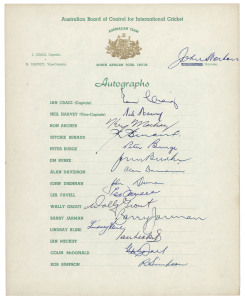 Australian Board of Control for International Cricket
AUSTRALIAN TEAM
SOUTH AFRICAN TOUR, 1957/58
I. CRAIG, Captain.
N. HARVEY, Vice-Captain.
Autographs
IAN CRAIG (Captain) Ian Craig
NEIL HARVEY (Vice-Captain) Neil Harvey
RON ARCHER
RICHIE BENAUD R Benaud
PETER BURGE Peter Burge
JIM BURKE Jim Burke
ALAN DAVIDSON Alan Davidson
JOHN DRENNAN
LES FAVELL Les Favell
WALLY GROUT Wally Grout
BARRY JARMAN Barry Jarman
LINDSAY KLINE Lindsay Kline
IAN MECKIFF Ian Meckiff
COLIN McDONALD
BOB SIMPSON R Simpson